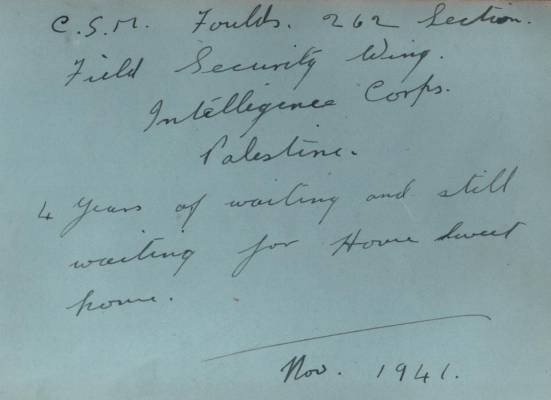 C.S.M. Foulds. 262 Section.
Field Security Wing.
Intelligence Corps.
Palestine.
4 Years of waiting and still
waiting for Home Sweet
home.
Nov. 1941.